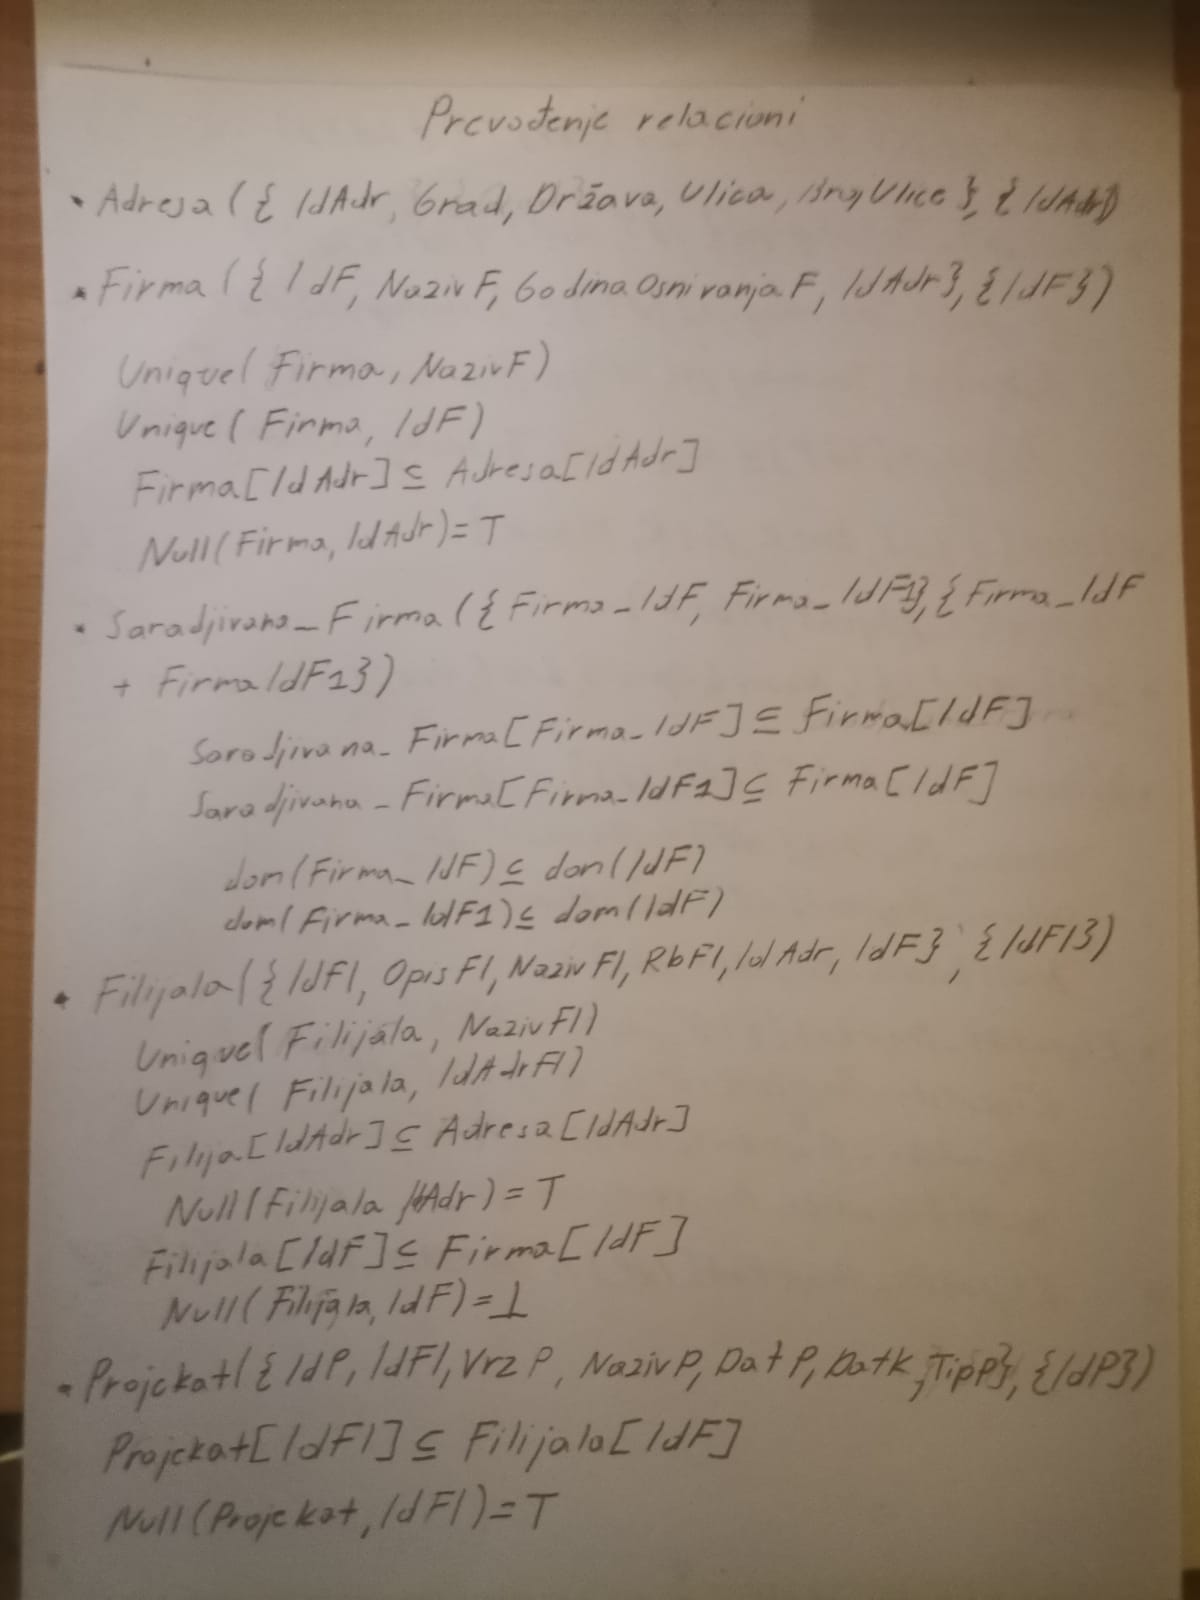 Prevođenje relacioni
• Adresa ({ IdAdr, Grad, Država, Ulica, BrojUlice }, { IdAdr})
• Firma ({ IdF, NazivF, GodinaOsnivanjaF, IdAdr}, {IdF})
Unique( Firma, NazivF)
Unique( Firma, IdF)
Firma[IdAdr] ⊆ Adresa[IdAdr]
Null(Firma, IdAdr)= T
• Saradjivana_Firma ({ Firma_IdF, Firma_IdF1}, { Firma_IdF
+ FirmaIdF1})
Saradjivana_Firma[Firma_IdF] ⊆ Firma[IdF]
Saradjivana_Firma[Firma_IdF1] ⊆ Firma[IdF]
dom(Firma_IdF) ⊆ dom(IdF)
dom(Firma_IdF1) ⊆ dom(IdF)
• Filijala({ IdFl, OpisFl, NazivFl, RbFl, IdAdr, IdF}, {IdFl})
Unique( Filijala, NazivFl)
Unique( Filijala, IdAdrFl)
Filija[IdAdr] ⊆ Adresa[IdAdr]
Null(Filijala IdAdr) = T
Filijala[IdF] ⊆ Firma[IdF]
Null(Filijala, IdF) = ⊥
• Projekat({ IdP, IdFl, VrzP, NazivP, DatP, DatK, TipP}, {IdP})
Projekat[IdFl] ⊆ Filijala[IdF]
Null(Projekat, IdFl)= T